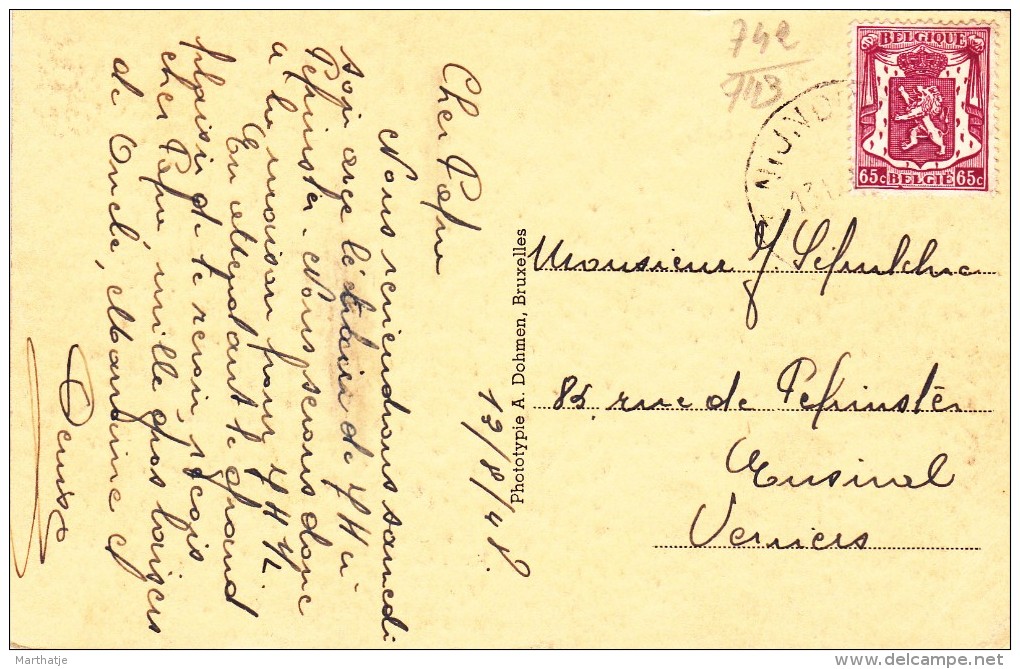 Cher Papa
Nous reviendrons samedi
soir avec le de 7 H à
Pepinster. Nous serons donc
à la maison pour 7 H 1/2.
En attendant le grand
plaisir de te revoir, reçois
cher Papa mille gros baisers
de Oncle, Marraine et
Denise
13/8/48
Phototypie A. Dohmen, Bruxelles
742
743
BELGIQUE
65c BELGIE 65c
Monsieur J. Sépulchre
85, rue de Pepinster
Ensival
Verviers
Marthatje
delcampe.net